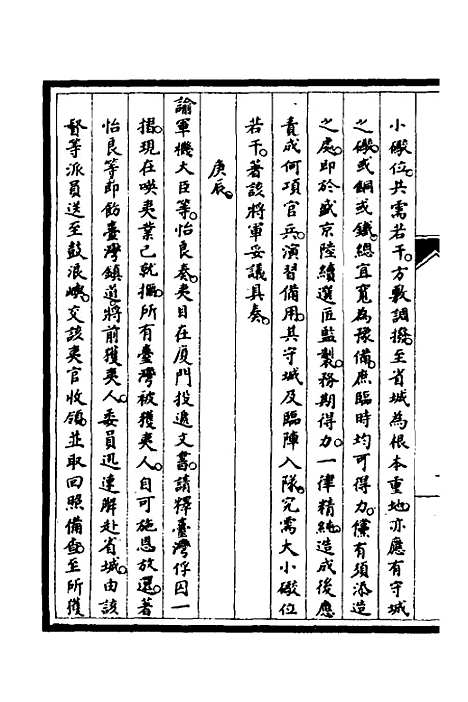 小礮位共需若干方敷調撥至省城為根本重地亦應有守城
之礮或銅或鐵總宜寬為豫備庶臨時均可得力儻有須添造
之處即於盛京陸續選匠監製務期得力一律精純造成後應
責成何項官兵演習備用其守城及臨陣入隊究需大小礮位
若干著該將軍妥議具奏
庚辰
諭軍機大臣等怡良奏夷目在廈門投遞文書請釋臺灣俘囚一
摺現在㗆夷業已就撫所有臺灣被獲夷人自可施恩放還著
怡良等即飭臺灣鎮道將前獲夷人委員迅速解赴省城由該
督等派員送至鼓浪嶼交該夷官收領並取回照備查至所獲